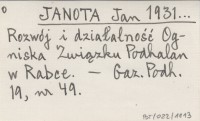 JANOTA Jan 1931...
Rozwój i działalność Og-
niska Związku Podhalan
w Rabce. — Gaz. Podh.
19, nr 49.